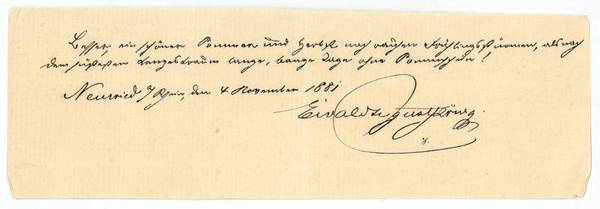 Besser ein schöner Sommer und Herbst nach rauhen Frühlingsstürmen, als nach
dem süßesten Lenzestraum lange, bange Tage ohne Sonnenschein!
Neuwied a/Rhein, den 4 November 1881
Ewald August König.